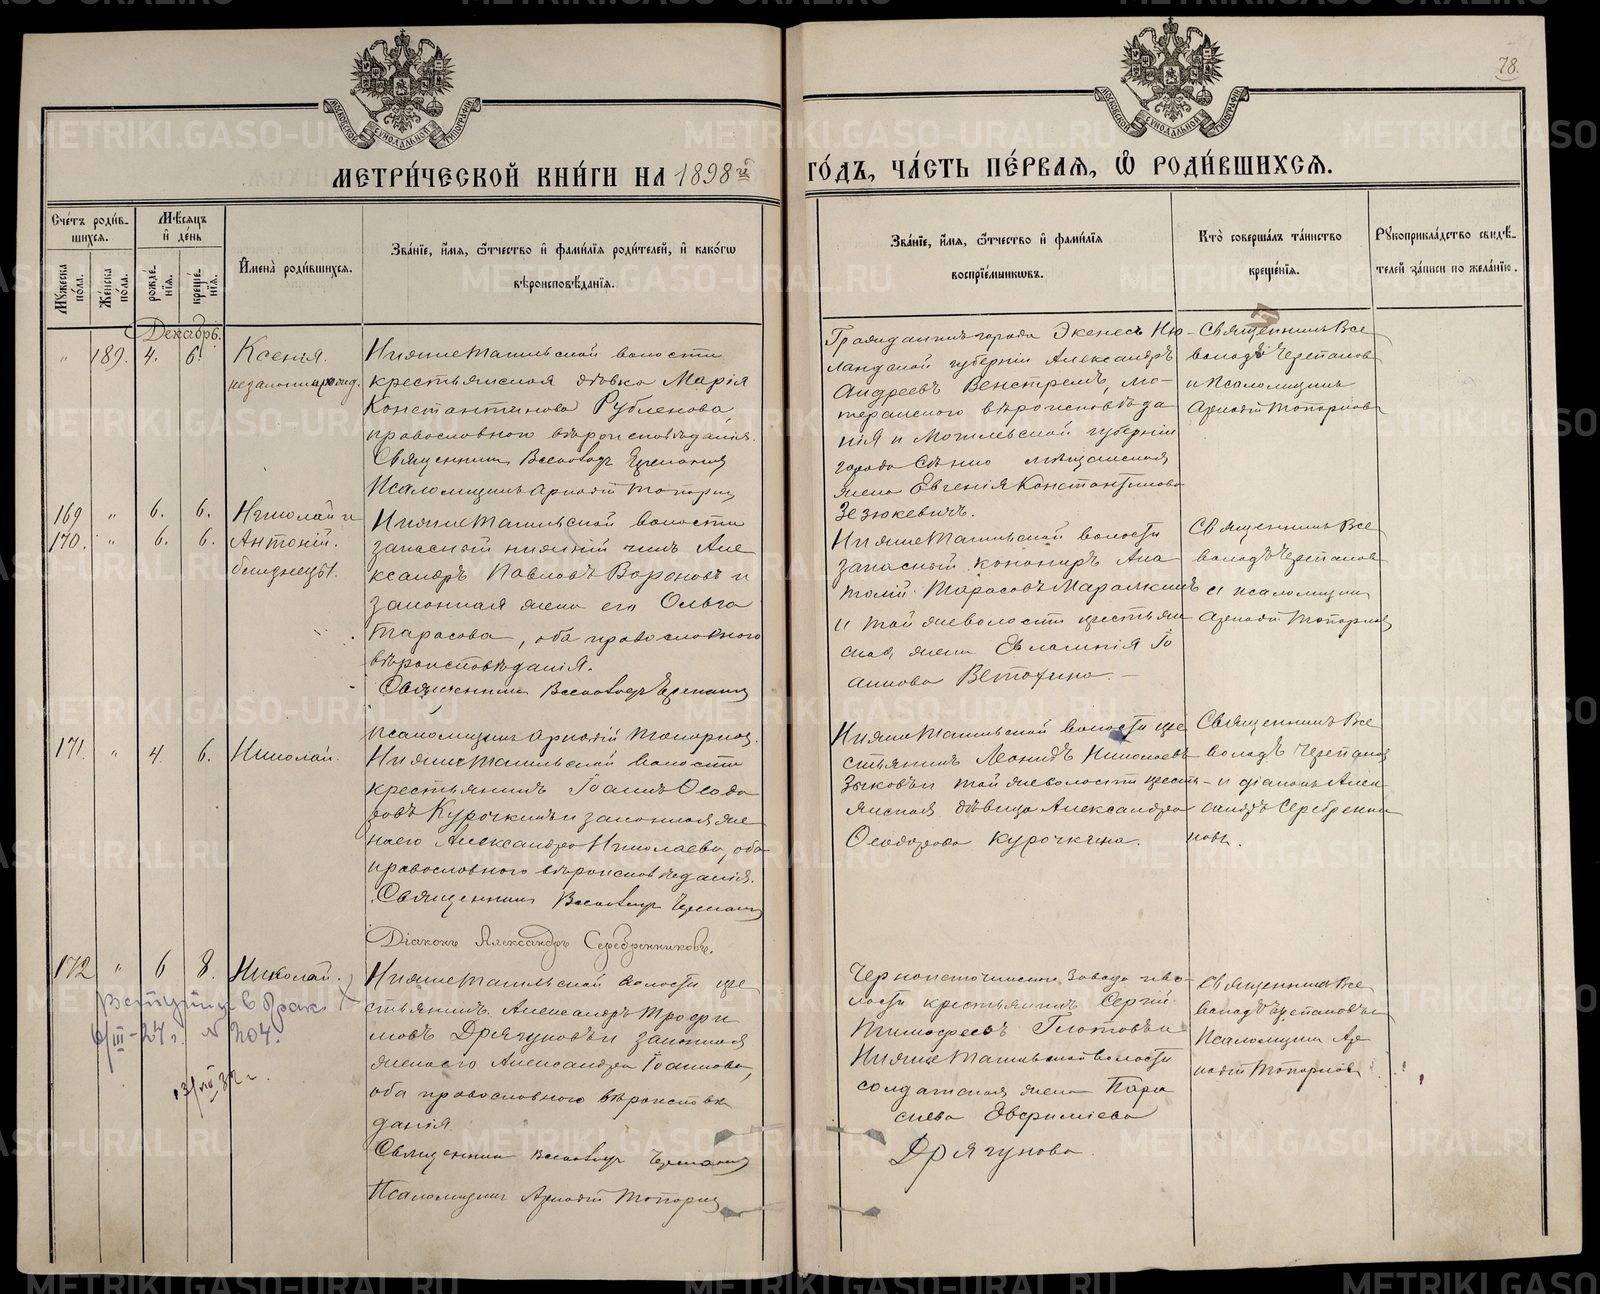 78.
МОСКОВСКОЙ СѴНОДАЛЬНОЙ ТИПОГРАФІИ
МОСКОВСКОЙ СѴНОДАЛЬНОЙ ТИПОГРАФІИ
МЕТРИ́ЧЕСКОЙ КНИ́ГИ НА 1898й ГО́ДЪ, ЧА́СТЬ ПЕ́РВАЯ, Ѽ РОДИ́ВШИХСЯ.
Сче́тъ роди́в-
шихся.
Мѣ́сяцъ
и҆ де́нь
Му́жеска по́ла.
Же́нска по́ла.
рожде́нїя.
креще́нїя.
И҆мена̀ роди́вшихся.
Зва́нїе, и҆́мя, ѻ҆́тчество и҆ фами́лїя роди́телей, и҆ како́гѡ
вѣроисповѣ́данїя.
Зва́нїе, и҆́мя, ѻ҆́тчество и҆ фами́лїя
воспрїе́мниковъ.
Кто̀ соверша́лъ та́инство
креще́нїя.
Рꙋкоприкла́дство свидѣ́-
телей за́писи по жела́нїю.
Декабрь.
" 189. 4. 6. Ксенія.
незаконнорожд.
Нижнетагильской волости
крестьянская дѣвка Марія
Константинова Рубленова,
православного вѣроисповѣданія.
Священникъ Всеволодъ Черепановъ
Псаломщикъ Аркадій Топорковъ
Гражданинъ города Экенесъ Ню-
ландской губерніи Александръ
Андреевъ Венстремъ, лю-
теранского вѣроисповѣда
нія и Могилевской губерніи
города Сѣнно мѣщанская
жена Евгенія Константинова
Зезюкевичъ.
Священникъ Все
володъ Черепановъ
и Псаломщикъ
Аркадій Топорковъ
169 " 6. 6. Николай и
170. " 6. 6. Антоній.
близнецы.
Нижнетагильской волости
запасный нижній чинъ Але
ксандръ Павловъ Вороновъ и
законная жена его Ольга
Тарасова, оба православного
вѣроисповѣданія.
Священникъ Всеволодъ Черепановъ
Псаломщикъ Аркадій Топорковъ.
Нижнетагильской волости
запасный канониръ Ана
толій Тарасовъ
и той же волости крестьян
ская жена Евлампія Іо
аннова Ветохина. –
Священникъ Все
володъ Черепановъ
и псаломщикъ
Аркадій Топорковъ
171 " 4. 6. Николай.
Нижнетагильской волости
крестьянинъ Іоаннъ Ѳеодо
ровъ Курочкинъ и законная же
на его Александра Николаева, оба
православного вѣроисповѣданія.
Священникъ Всеволодъ Черепановъ
Діаконъ Александръ Серебренниковъ.
Нижнетагильской волости кре
стьянинъ Леонидъ Николаевъ
Зыковъ и той же волости кресть-
янская дѣвица Александра
Ѳеодорова Курочкина.
Священникъ Все
володъ Черепановъ
и діаконъ Алек
сандръ Серебренни
ковъ.
172 " 6 8. Николай.
Вступил в брак
6/III-27 г. № 204.
Нижнетагильской волости кре
стьянинъ Александръ Трофи
мовъ Дрягуновъ и законная
жена его Александра Іоаннова,
оба православного вѣроисповѣ
данія.
Священникъ Всеволодъ Черепановъ
Псаломщикъ Аркадій Топорковъ
Черноисточинского завода и во-
лости крестьянинъ Сергій
Тимофеевъ Глотовъ и
Нижнетагильской волости
солдатская жена Пара
скева Евфиміева
Дрягунова.
Священникъ Все
володъ Черепановъ и
Псаломщикъ Ар
кадій Топорковъ
METRIKI.GASO-URAL.RU